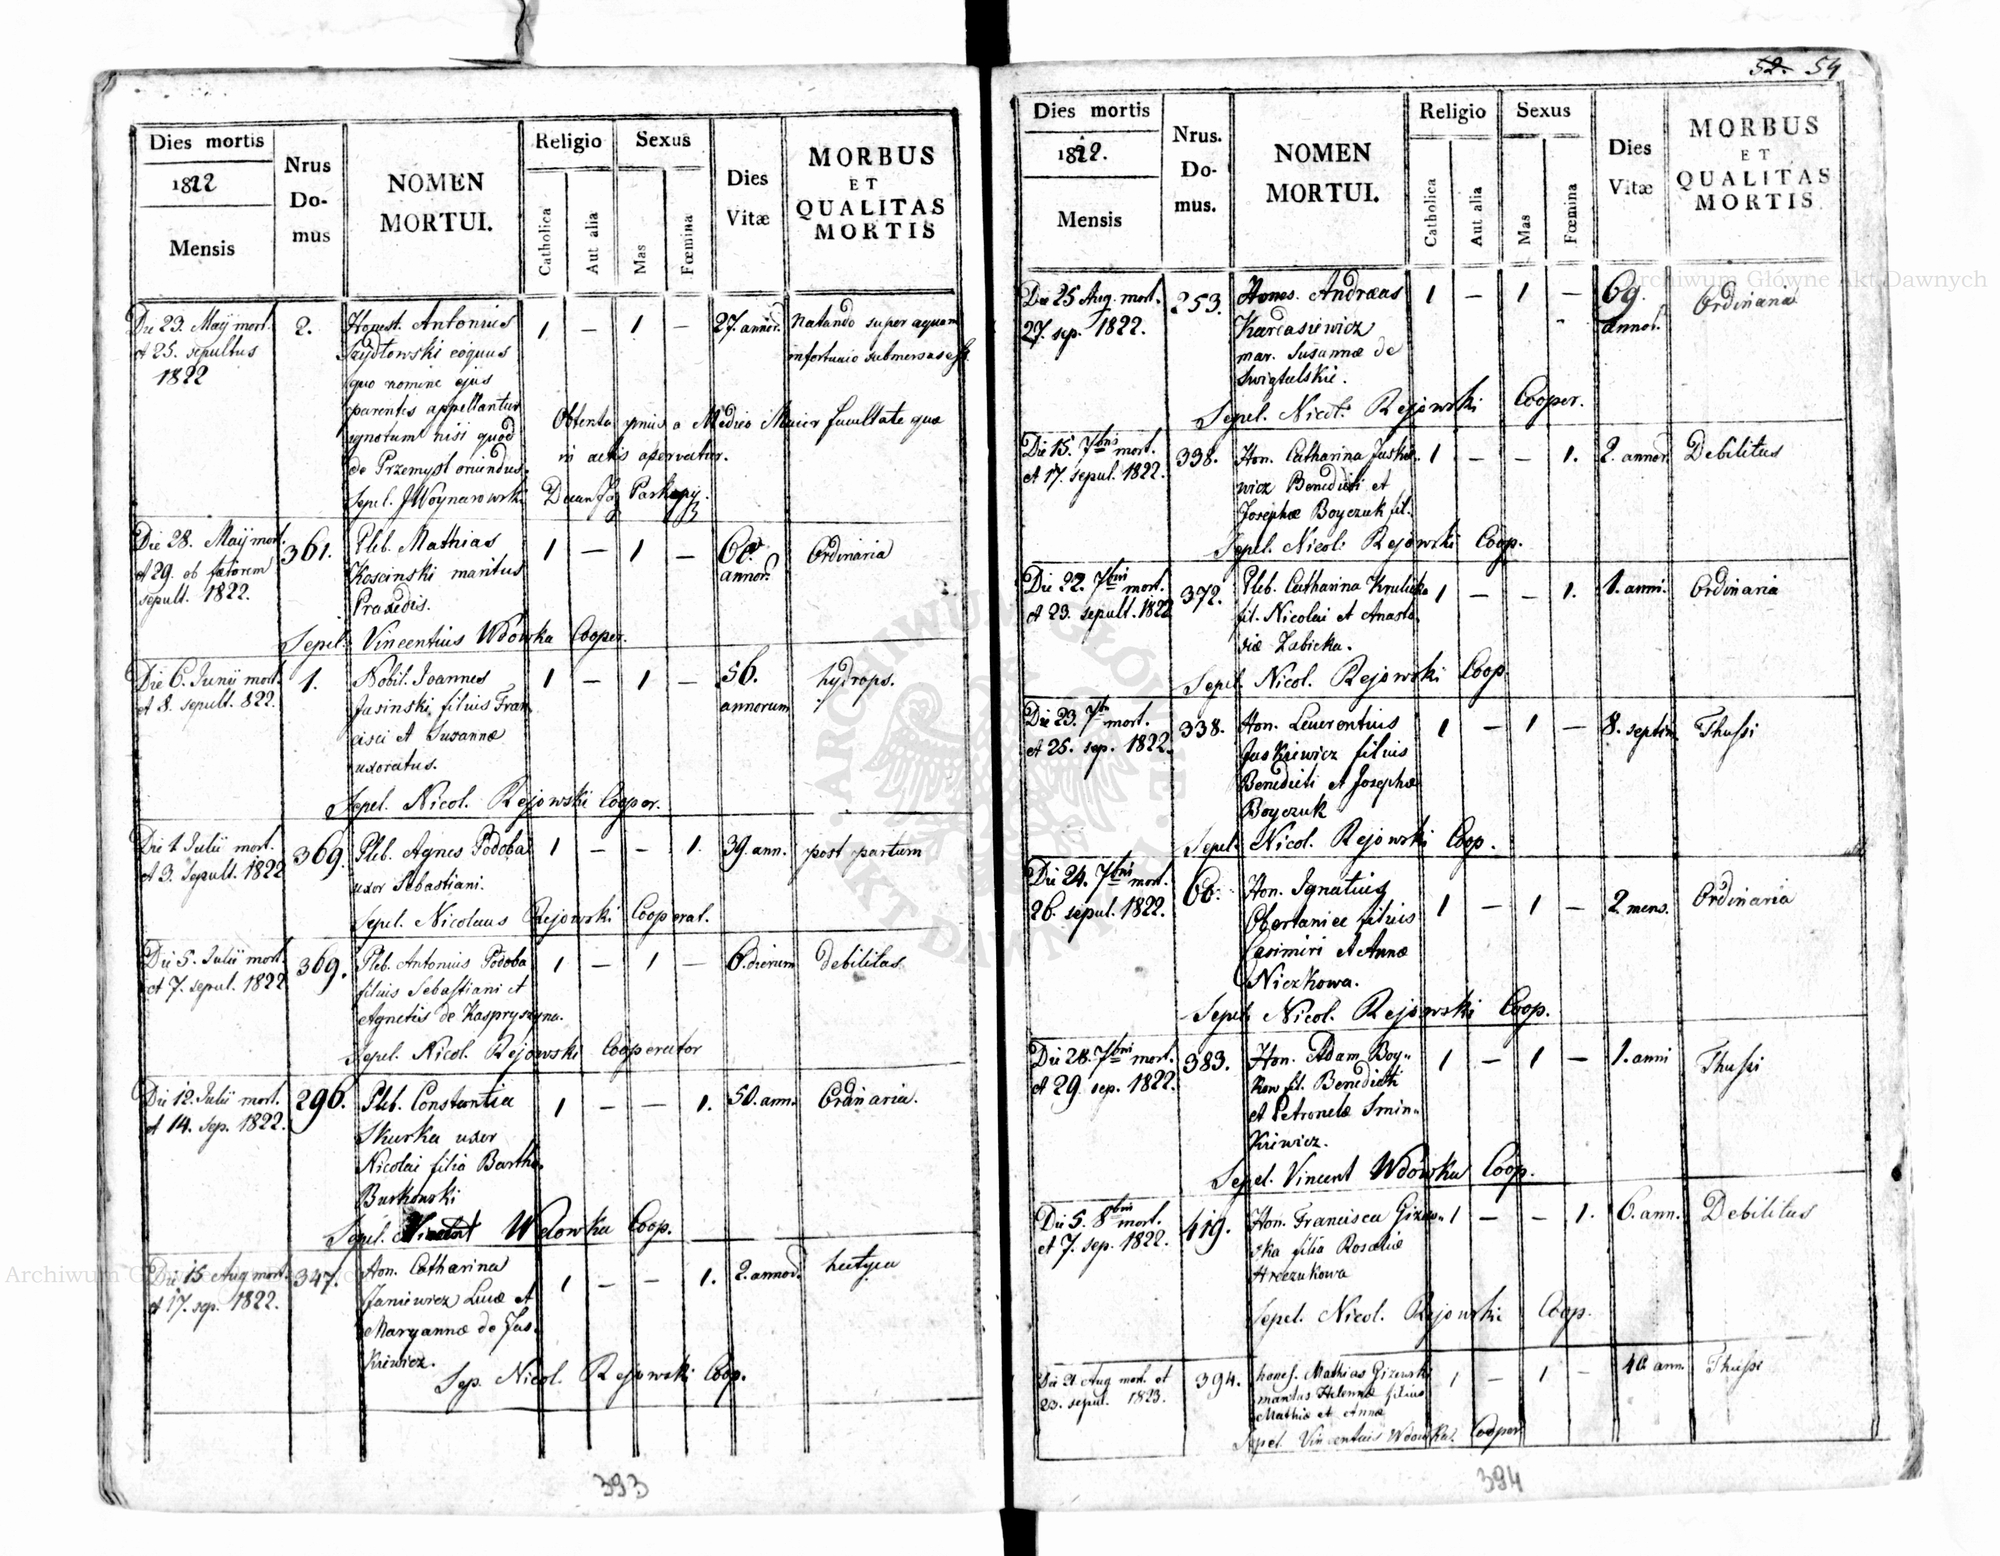 Dies mortis
1822
Mensis
Nrus
Do-
mus
NOMEN
MORTUI.
Religio
Catholica
Aut alia
Sexus
Mas
Fœmina
Dies
Vitæ
MORBUS
ET
QUALITAS
MORTIS
Die 23. Maij mort. 2. Honest. Antonius 1 — 1 — 27. annor. Natando super aquam
et 25. sepultus Szydłowski coquus infortunio submersus est.
1822 quo nomine ejus
parentes appellantur
ignotum nisi quod
de Przemysl oriundus.
Obtenta prius a Medico Maier facultate quæ
in actis aservatur.
Sepel. J Woynarowski Decan Par
Die 28. Maij mort. 361. Pleb. Mathias 1 — 1 — 60 Ordinaria
et 29. ob fœtorem Koscinski maritus annor.
sepult. 1822. Praxedis.
Sepel. Vincentius Wdowka Cooper.
Die 6. Junij mort. 1. Nobil. Joannes 1 — 1 — 56. hydrops.
et 8. sepult. 822. Jasinski filius Fran annorum
cisci et Susannæ
uxoratus.
Sepel. Nicol. Rejowski Cooper.
Die 1 Julii mort. 369. Pleb. Agnes Podoba 1 — — 1. 39. ann. post partum
et 3. Sepult. 1822 uxor Sebastiani.
Sepel. Nicolaus Rejowski Cooperat.
Die 5. Julii mort. 369. Pleb. Antonius Podoba 1 — 1 — 6. dierum debilitas
et 7. sepul. 1822 filius Sebastiani et
Agnetis de Kaspryszyna.
Sepel. Nicol. Rejowski Cooperator
Die 12. Julii mort. 296. Pleb. Constantia 1 — — 1. 50. ann. Ordinaria.
et 14. Sep. 1822. Skurka uxor
Nicolai filia Barth.
Burkowski
Sepel. Vincent Wdowka Coop.
Die 15 Aug mort. 347. Hon. Catharina 1 — — 1. 2. annor. hectyca
et 17. sep. 1822. Janiewicz Lucæ et
Maryannæ de Jas-
kiewicz.
Sep. Nicol. Rejowski Coop.
393
52. 54
Dies mortis
1822.
Mensis
Nrus.
Do-
mus.
NOMEN
MORTUI.
Religio
Catholica
Aut alia
Sexus
Mas
Fœmina
Dies
Vitæ
MORBUS
ET
QUALITAS
MORTIS
Die 25 Aug. mort. 253. Hones. Andreas 1 — 1 — 69. Ordinaria
27. sep. 1822. Kardasiewicz annor.
mar. Susannæ de
Swigtulskie.
Sepel. Nicol. Rejowski Cooper.
Die 15. 7bris mort. 338. Hon. Catharina Jaskie- 1 — — 1. 2. annor. Debilitas
et 17. sepul. 1822. wicz Benedicti et
Josephæ Boyczuk fil.
Sepel. Nicol. Rejowski Coop.
Die 22. 7bris mort. 372. Pleb. Catharina Krulicka 1 — — 1. 1. anni. Ordinaria
et 23. sepult. 1822 fil. Nicolai et Anasta-
siæ Zabicka.
Sepel. Nicol. Rejowski Coop
Die 23. 7bris mort. 338. Hon. Laurentius 1 — 1 — 8. septim. Thussi
et 25. sep. 1822. Jaskiewicz filius
Benedicti et Josephæ
Boyczuk
Sepel. Nicol. Rejowski Coop.
Die 24. 7bris mort. 66. Hon. Ignatius 1 — 1 — 2. mens. Ordinaria
26. sepul. 1822. Obertaniec filius
Casimiri et Annæ
Niczkowa.
Sepel. Nicol. Rejowski Coop.
Die 28. 7bris mort. 383. Hon. Adam Boy- 1 — 1 — 1. anni Thussi
et 29. sep. 1822. kow fil. Benedicti
et Petronelæ Smin-
kiewicz.
Sepel. Vincent Wdowka Coop.
Die 5. 8bris mort. 419. Hon. Francisca Gizew- 1 — — 1. 6. ann. Debilitas
et 7. sep. 1822. ska filia Rosaliæ
Hreczukowa
Sepel. Nicol. Rejowski Coop.
Die 21 Aug mort. et 394. honest. Mathias Gizewski 1 — 1 — 40 ann. Thussi
23. sepul. 1823. maritus Helennæ filius
Mathiæ et Annæ
Sepel. Vincentius Wdowka Cooper
394
Archiwum Główne Akt Dawnych
ARCHIWUM GŁÓWNE AKT DAWNYCH